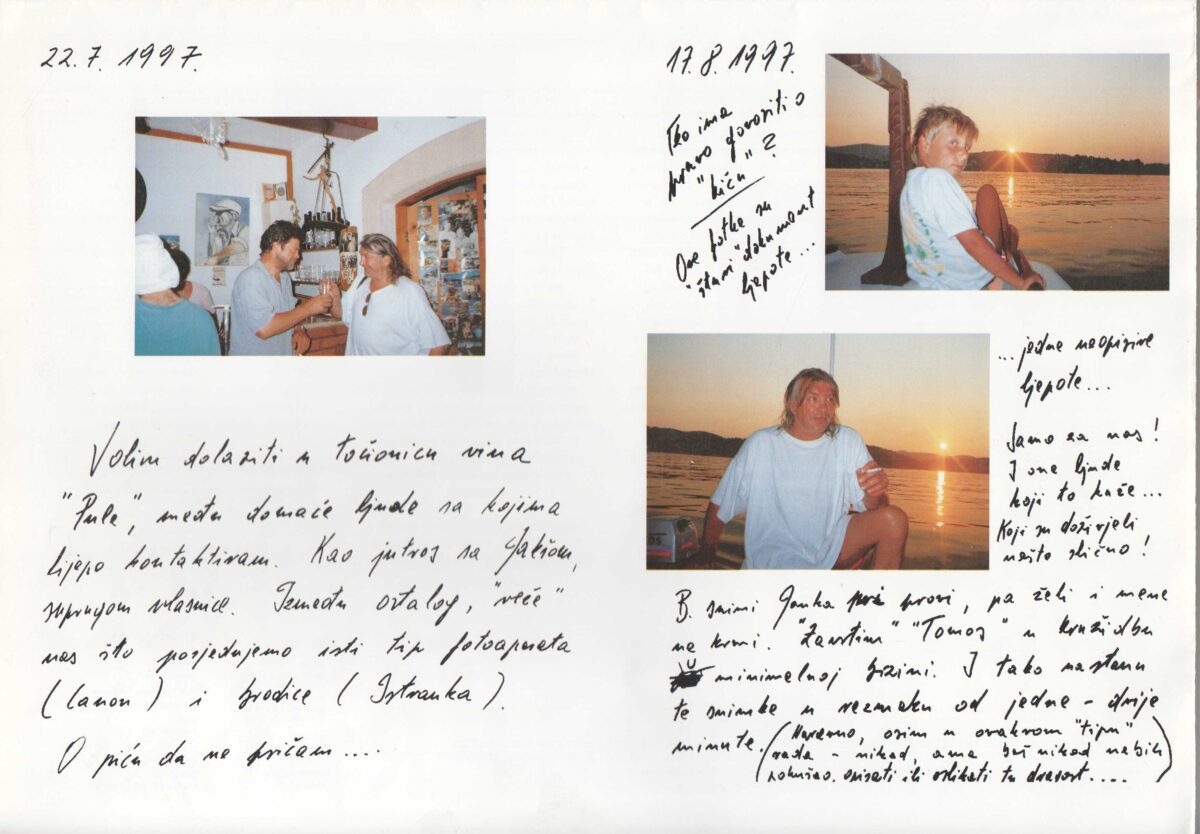 22.7.1997.
Volim dolaziti u točionicu vina
"Pule", među domaće ljude sa kojima
lijepo kontaktiram. Kao jutros sa Jakšom,
suprugom vlasnice. Između ostalog, "veže"
nas što posjedujemo isti tip fotoaparata
(Canon) i brodice (Istranka).
O piću da ne pričam....
17.8.1997.
Tko ima
pravo govoriti o
"kiču"?
Ove fotke su
"štari" dokument
ljepote...
...jedne neopisive
ljepote...
Samo za nas!
I one ljude
koji to kuže...
Koji su doživjeli
nešto slično!
B. snimi Janka prvi, pa želi i mene
na krmi. "Zavrtim" "Tomos" u kružidbu
u minimalnoj brzini. I tako nastanu
te snimke u razmaku od jedne - dvije
minute. (Naravno, osim u ovakvom "tipu"
rada - nikad, ama baš nikad nebih
pokušao opisati ili oslikati tu dragost....)